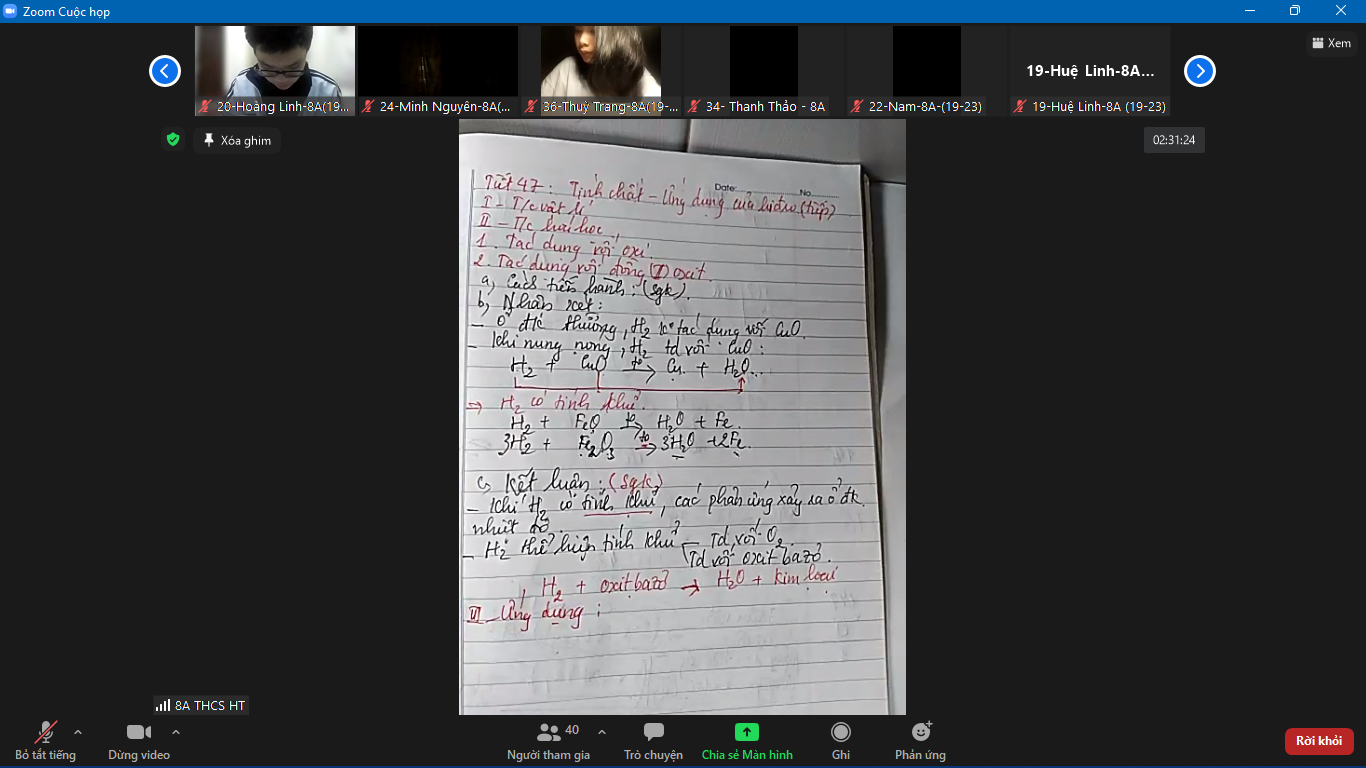 Zoom Cuộc họp
Xem
20-Hoàng Linh-8A(19...
24-Minh Nguyên-8A(...
36-Thuỳ Trang-8A(19-...
34- Thanh Thảo - 8A
22-Nam-8A-(19-23)
19-Huệ Linh-8A...
19-Huệ Linh-8A (19-23)
Xóa ghim
02:31:24
Date: No
Tiết 47: Tính chất - Ứng dụng của hiđro (tiếp)
I - T/c vật lí
II - T/c hoá học
1. Tác dụng với oxi.
2. Tác dụng với đồng (II) oxit.
a, Cách tiến hành: (sgk).
b, Nhận xét:
- Ở đk thường, H2 k° tác dụng với CuO.
- Khi nung nóng, H2 td với CuO:
H2 + CuO t° → Cu + H2O.
⇒ H2 có tính khử.
H2 + FeO t° → H2O + Fe.
3H2 + Fe2O3 t° → 3H2O + 2Fe.
c, Kết luận: (Sgk)
- Khí H2 có tính khử, các phản ứng xảy ra ở đk
nhiệt độ.
- H2 thể hiện tính khử - Td với O2.
Td với oxit bazơ.
H2 + oxit bazơ → H2O + kim loại
III - Ứng dụng:
8A THCS HT
Bỏ tắt tiếng
Dừng video
40
Người tham gia
Trò chuyện
Chia sẻ Màn hình
Ghi
Phản ứng
Rời khỏi